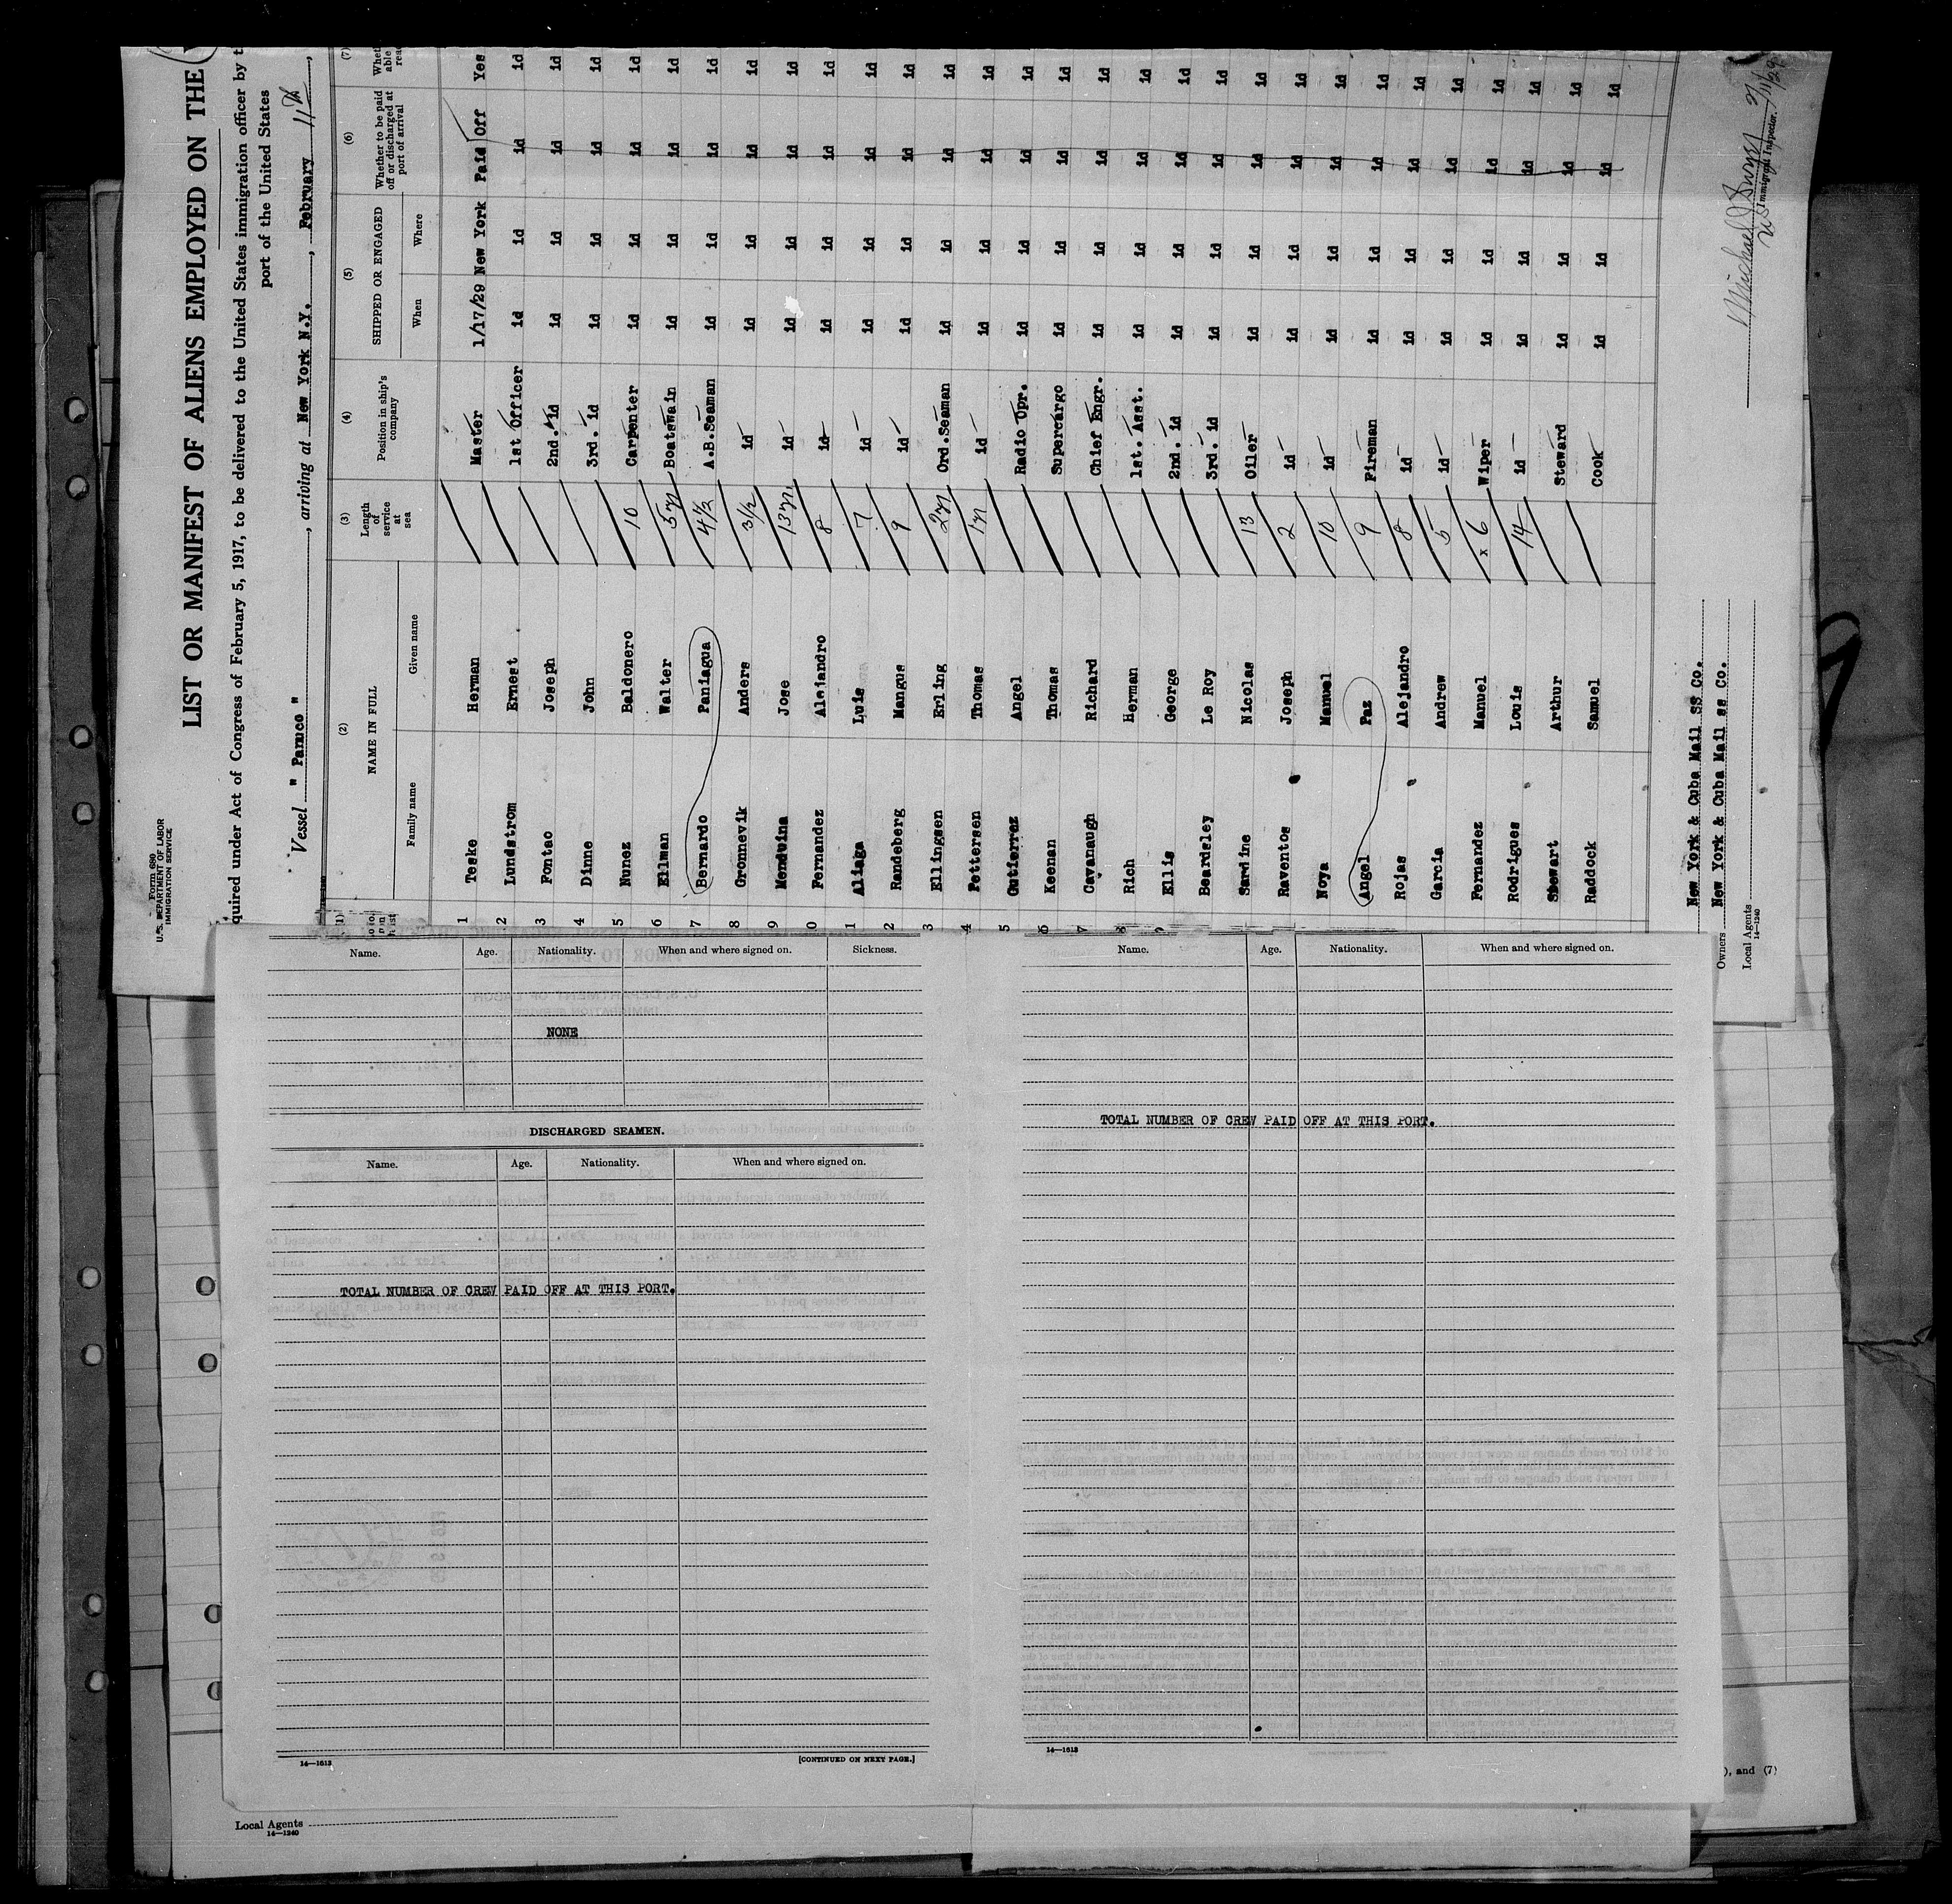 Form 680
U. S. DEPARTMENT OF LABOR
IMMIGRATION SERVICE
LIST OR MANIFEST OF ALIENS EMPLOYED ON THE
quired under Act of Congress of February 5, 1917, to be delivered to the United States immigration officer by t
port of the United States
Vessel " Panuco ", arriving at New York N.Y., February 11th,
(1) (2) (3) (4) (5) (6) (7)
NAME IN FULL Length of service at sea Position in ship's company SHIPPED OR ENGAGED Whether to be paid off or discharged at port of arrival
Family name Given name When Where
1 Teske Herman Master 1/17/29 New York Paid Off Yes
2 Lundstrom Ernest 1st Officer id id id id
3 Pontao Joseph 2nd. id id id id id
4 Dinne John 3rd. id id id id id
5 Nunez Baldonero 10 Carpenter id id id id
6 Ellman Walter 5 Boatswain id id id id
7 Bernardo Paniagua 4½ A.B.Seaman id id id id
8 Gronnevik Anders 3½ id id id id id
9 Menduina Jose 13 id id id id id
0 Fernandez Alejandro 8 id id id id id
1 Aliaga Luis 7 id id id id id
2 Randeberg Mangus 9 id id id id id
3 Ellingsen Erling 2 Ord.Seaman id id id id
4 Pettersen Thomas 1 id id id id id
5 Gutierrez Angel Radio Opr. id id id id
6 Keenan Thomas Supercargo id id id id
7 Cavanaugh Richard Chief Engr. id id id id
8 Rich Herman 1st. Asst. id id id id
9 Ellis George 2nd. id id id id id
Beardsley Le Roy 3rd. id id id id id
Sardine Nicolas 13 Oiler id id id id
Raventos Joseph 2 id id id id id
Noya Manuel 10 id id id id id
Angel Paz 9 Fireman id id id id
Rojas Alejandro 8 id id id id id
Garcia Andrew 5 id id id id id
Fernandez Manuel x 6 Wiper id id id id
Rodrigues Louis 14 id id id id id
Stewart Arthur Steward id id id id
Raddock Samuel Cook id id id id
New York & Cuba Mail SS Co.
Owners New York & Cuba Mail ss Co.
Local Agents
14—1240
Michael
Immigrant Inspector.
2/11/29
Name. Age. Nationality. When and where signed on. Sickness.
NONE
DISCHARGED SEAMEN.
Name. Age. Nationality. When and where signed on.
TOTAL NUMBER OF CREW PAID OFF AT THIS PORT.
14—1613 [CONTINUED ON NEXT PAGE.]
Name. Age. Nationality. When and where signed on.
TOTAL NUMBER OF CREW PAID OFF AT THIS PORT.
14—1613
), and (7)
Local Agents
14—1240